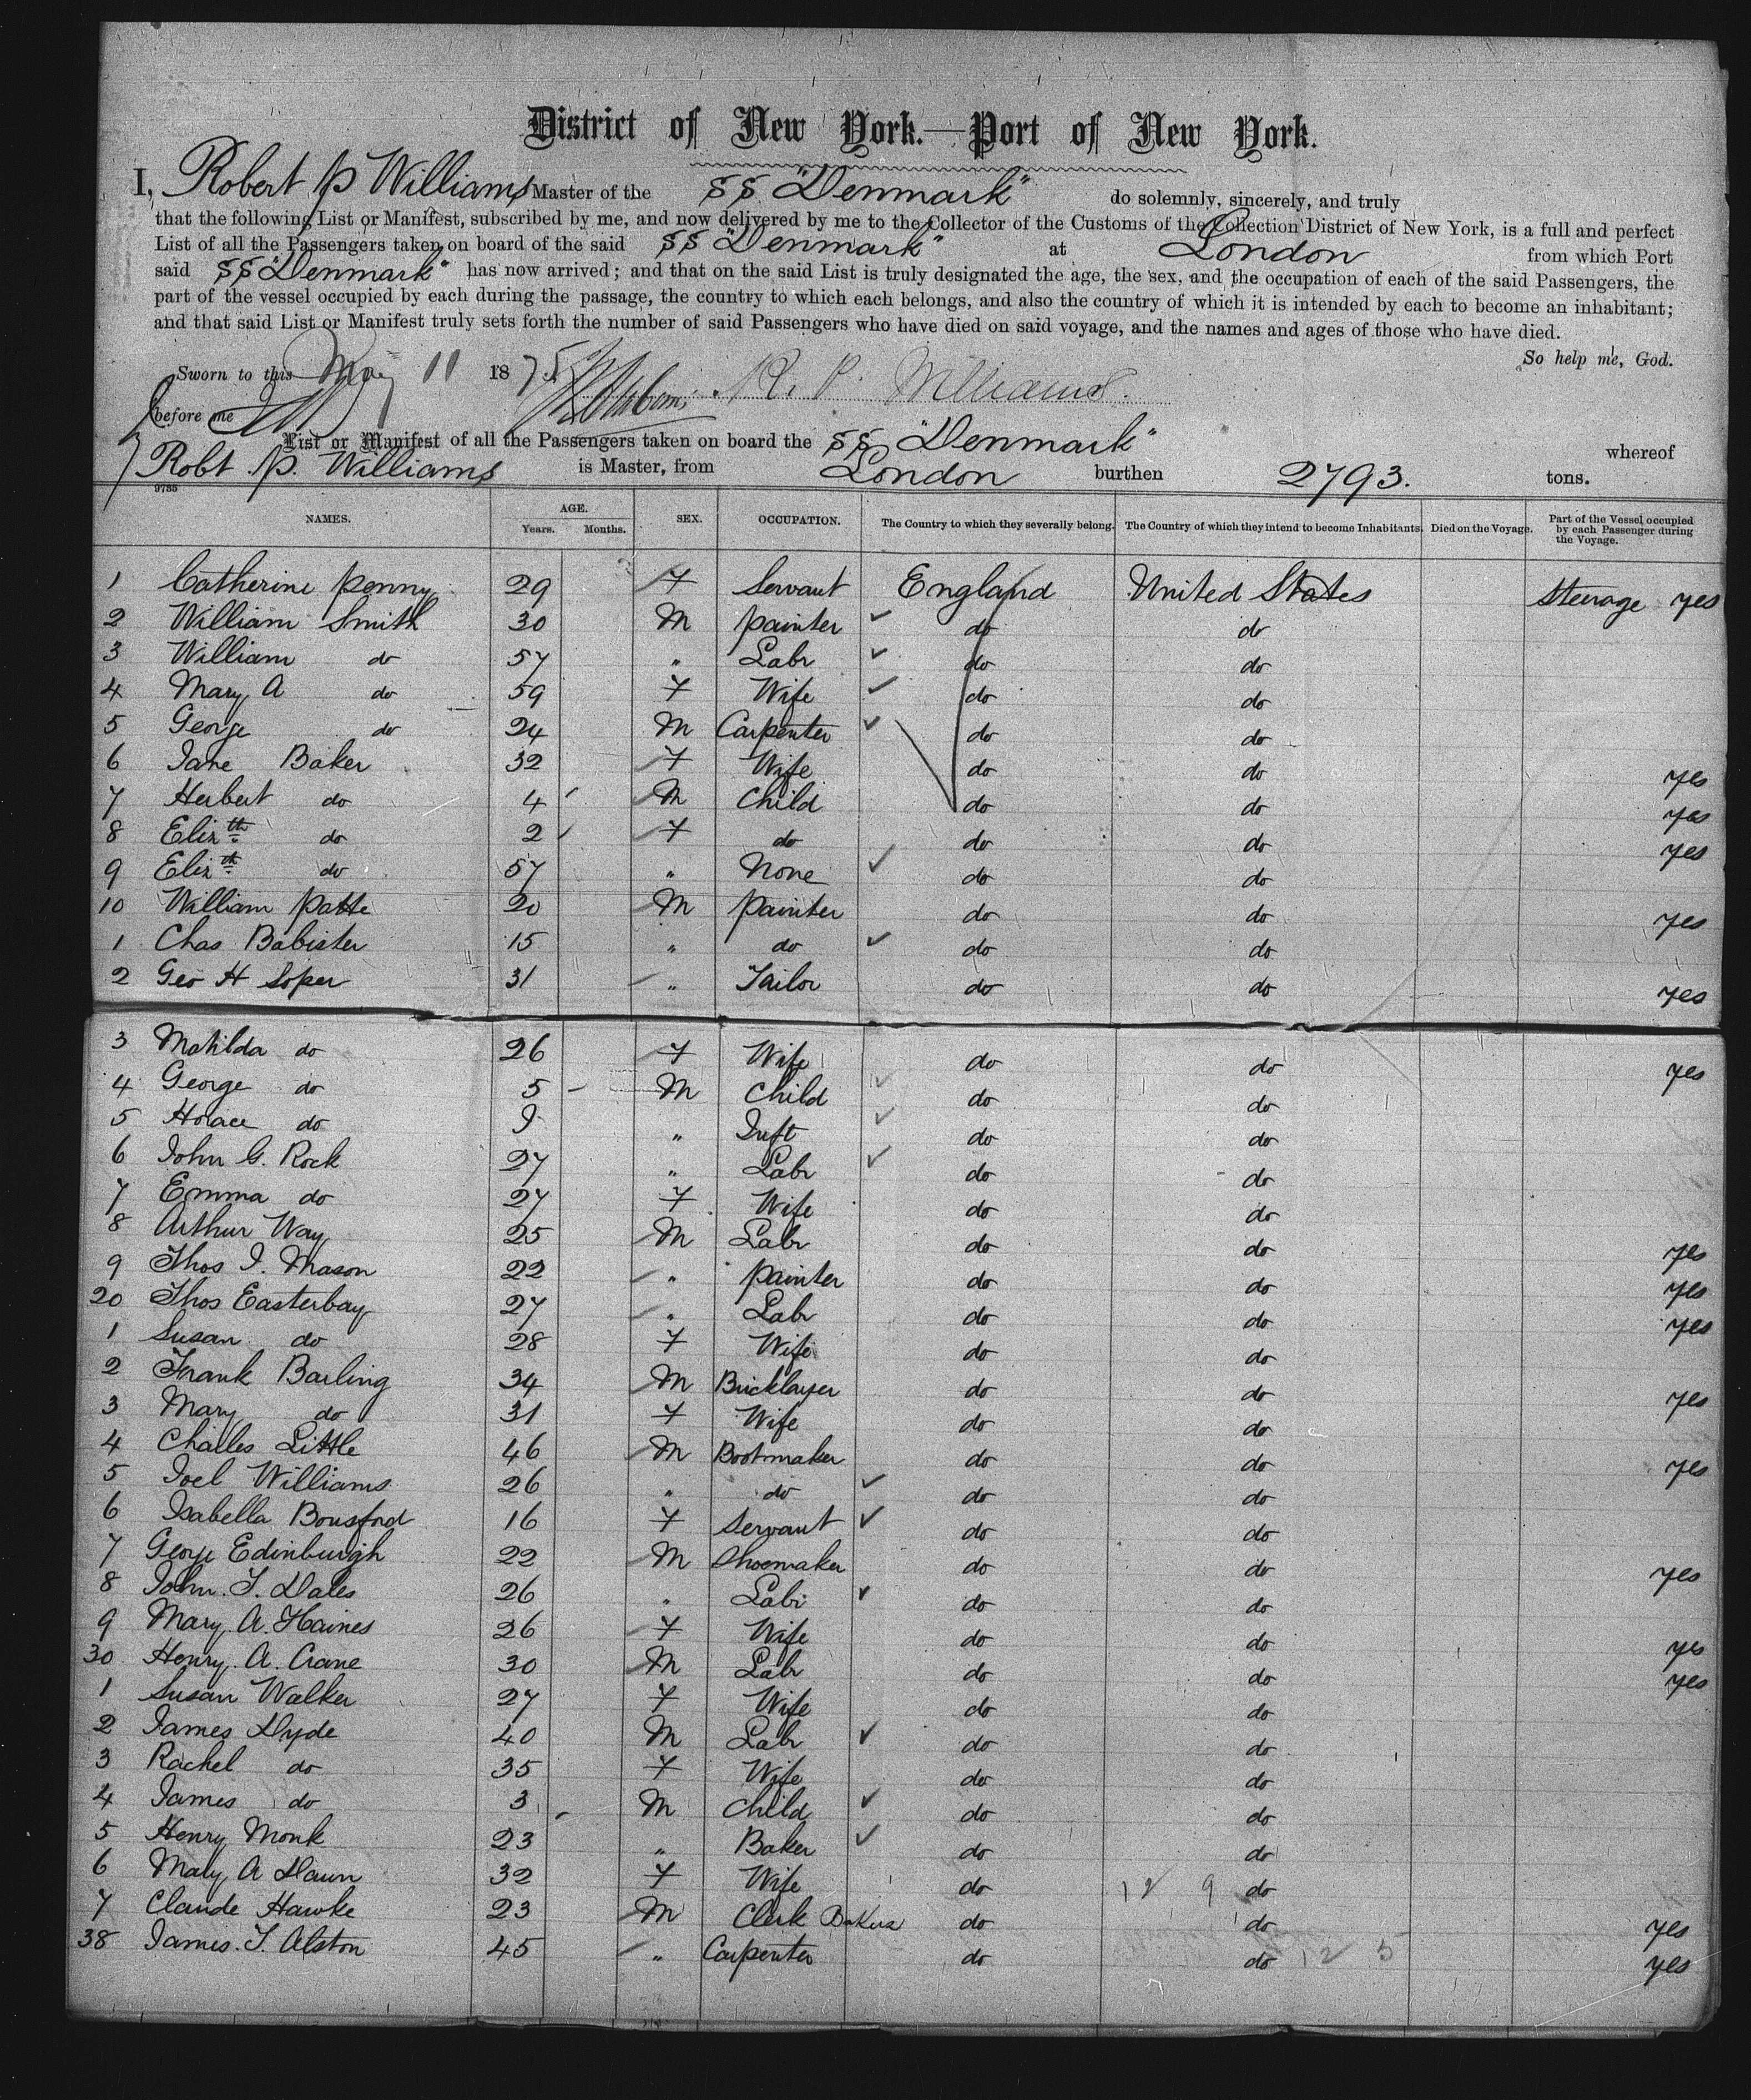 District of New York.—Port of New York.
I, Robert P Williams Master of the SS "Denmark" do solemnly, sincerely, and truly
that the following List or Manifest, subscribed by me, and now delivered by me to the Collector of the Customs of the Collection District of New York, is a full and perfect
List of all the Passengers taken on board of the said SS "Denmark" at London from which Port
said SS "Denmark" has now arrived; and that on the said List is truly designated the age, the sex, and the occupation of each of the said Passengers, the
part of the vessel occupied by each during the passage, the country to which each belongs, and also the country of which it is intended by each to become an inhabitant;
and that said List or Manifest truly sets forth the number of said Passengers who have died on said voyage, and the names and ages of those who have died.
So help me, God.
Sworn to this May 11 1875 R. P. Williams.
before me
List or Manifest of all the Passengers taken on board the SS "Denmark" whereof
Robt P. Williams is Master, from London burthen 2793. tons.
9735
NAMES. AGE. Years. Months. SEX. OCCUPATION. The Country to which they severally belong. The Country of which they intend to become Inhabitants. Died on the Voyage. Part of the Vessel occupied by each Passenger during the Voyage.
1 Catherine Penny 29 F Servant England United States Steerage yes
2 William Smith 30 M Painter do do
3 William do 57 " Labr do do
4 Mary A do 59 F Wife do do
5 George do 24 M Carpenter do do
6 Jane Baker 32 F Wife do do yes
7 Herbert do 4 M Child do do yes
8 Elizth do 2 F do do do yes
9 Elizth do 57 " None do do
10 William Patte 20 M Painter do do yes
1 Chas Babister 15 " do do do
2 Geo H Soper 31 " Tailor do do yes
3 Matilda do 26 F Wife do do yes
4 George do 5 M Child do do
5 Horace do " Inft do do
6 John G. Rock 27 " Labr do do
7 Emma do 27 F Wife do do
8 Arthur Way 25 M Labr do do yes
9 Thos J. Mason 22 " Painter do do yes
20 Thos Easterbay 27 " Labr do do yes
1 Susan do 28 F Wife do do
2 Frank Barling 34 M Bricklayer do do yes
3 Mary do 31 F Wife do do
4 Charles Little 46 M Bootmaker do do yes
5 Joel Williams 26 " do do do
6 Isabella Bonsford 16 F Servant do do
7 George Edinburgh 22 M Shoemaker do do yes
8 John. T. Dales 26 " Labr do do
9 Mary. A. Haines 26 F Wife do do yes
30 Henry. A. Crane 30 M Labr do do yes
1 Susan Walker 27 F Wife do do
2 James Hyde 40 M Labr do do
3 Rachel do 35 F Wife do do
4 James do 3 M Child do do
5 Henry Monk 23 " Baker do do
6 Mary A Dawn 32 F Wife do 12 9 do
7 Claude Hawke 23 M Clerk do do yes
38 James. T. Alston 45 " Carpenter do do 12 5 yes